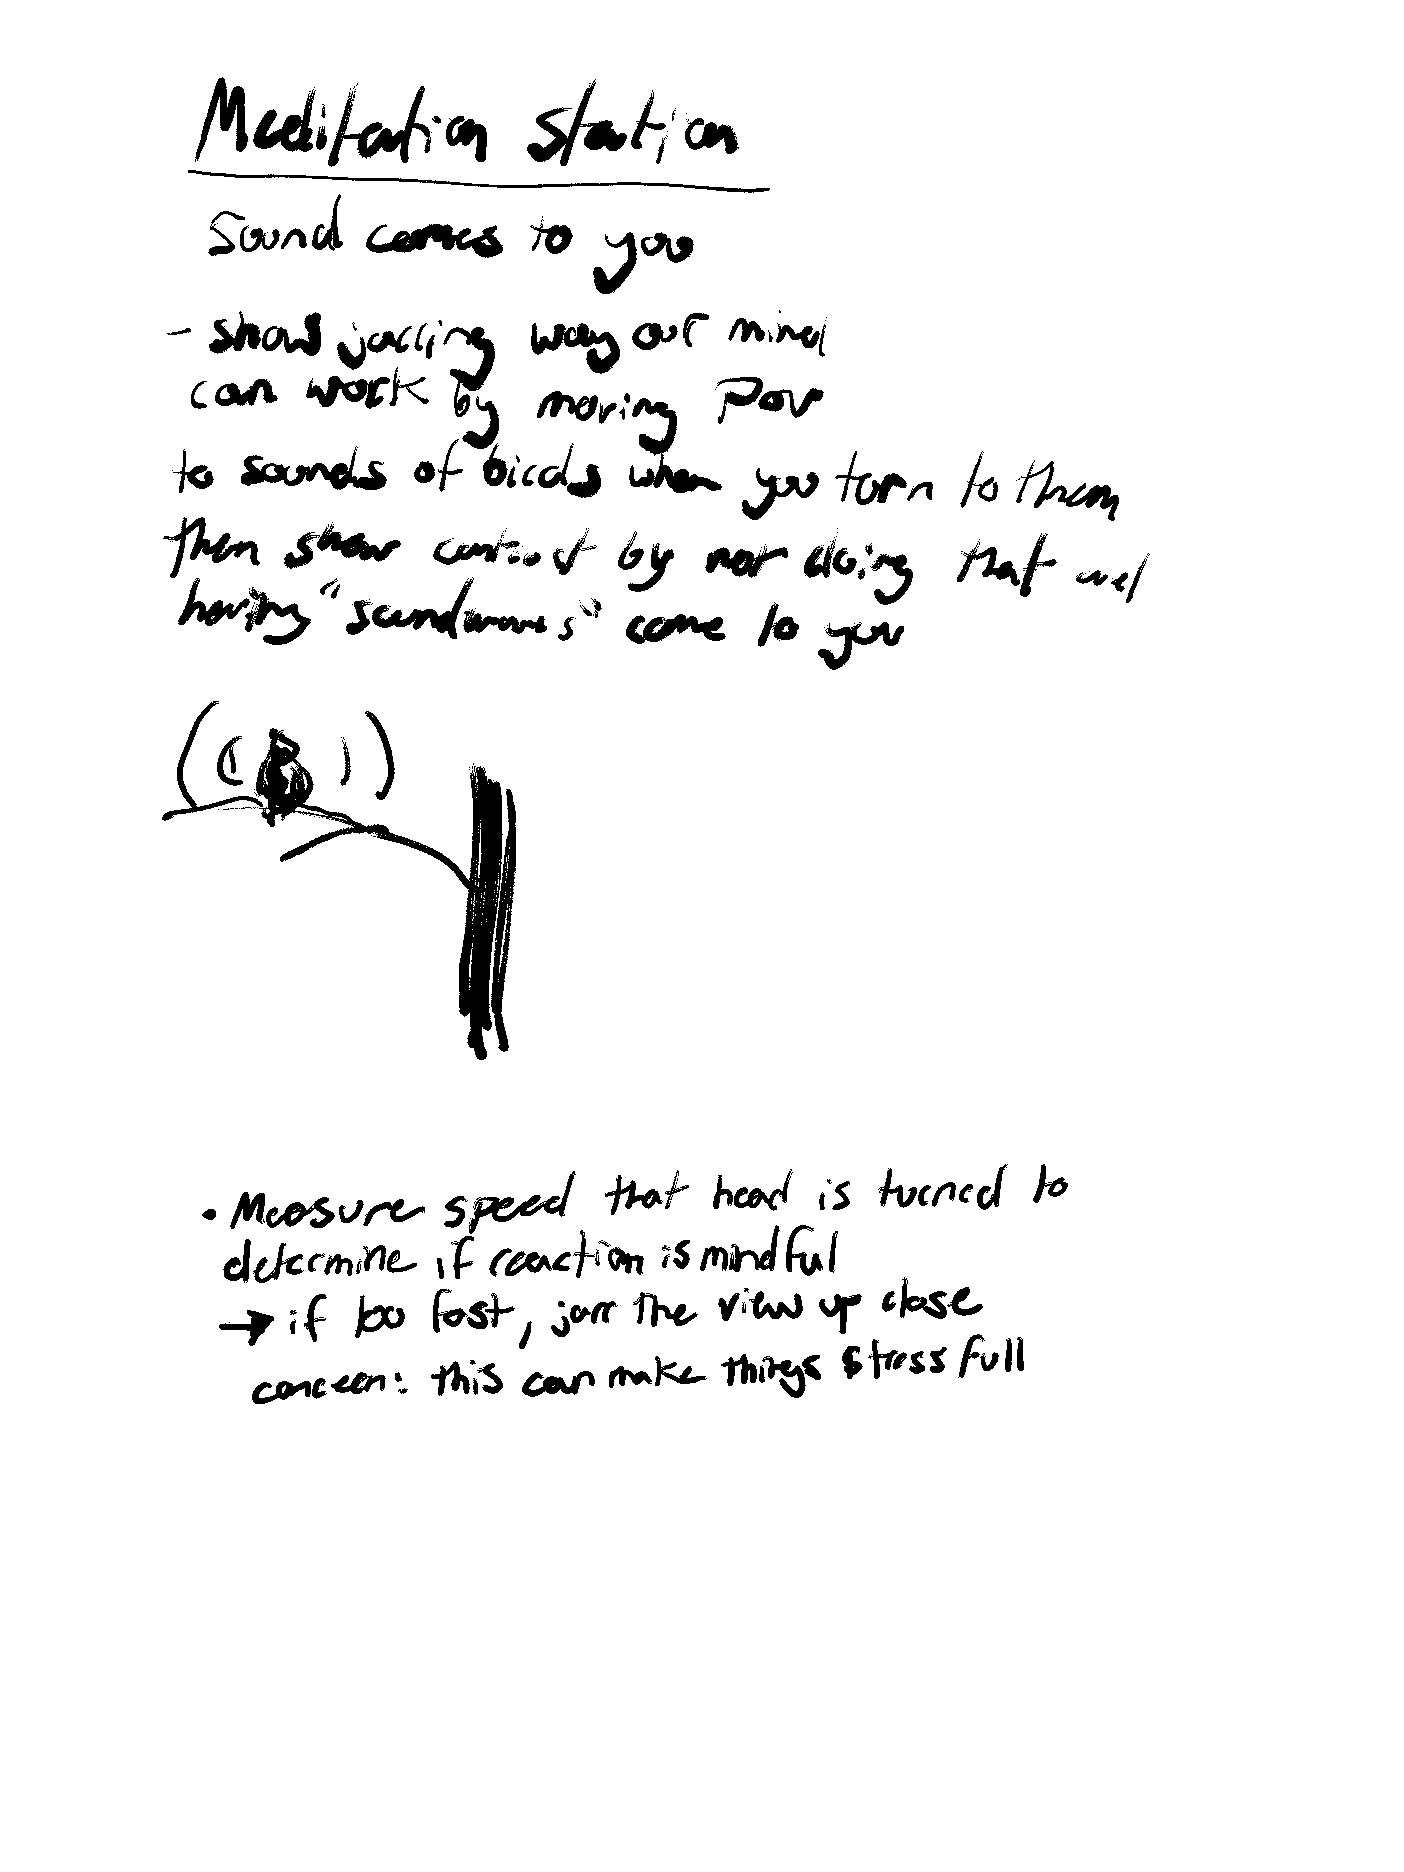 Meditation station
Sound comes to you
- show jarring way our mind
can work by moving POV
to sounds of birds when you turn to them
then show contrast by not doing that and
having "soundwaves" come to you
• Measure speed that head is turned to
determine if reaction is mindful
→ if too fast, jarr the view up close
concern: this can make things stressfull